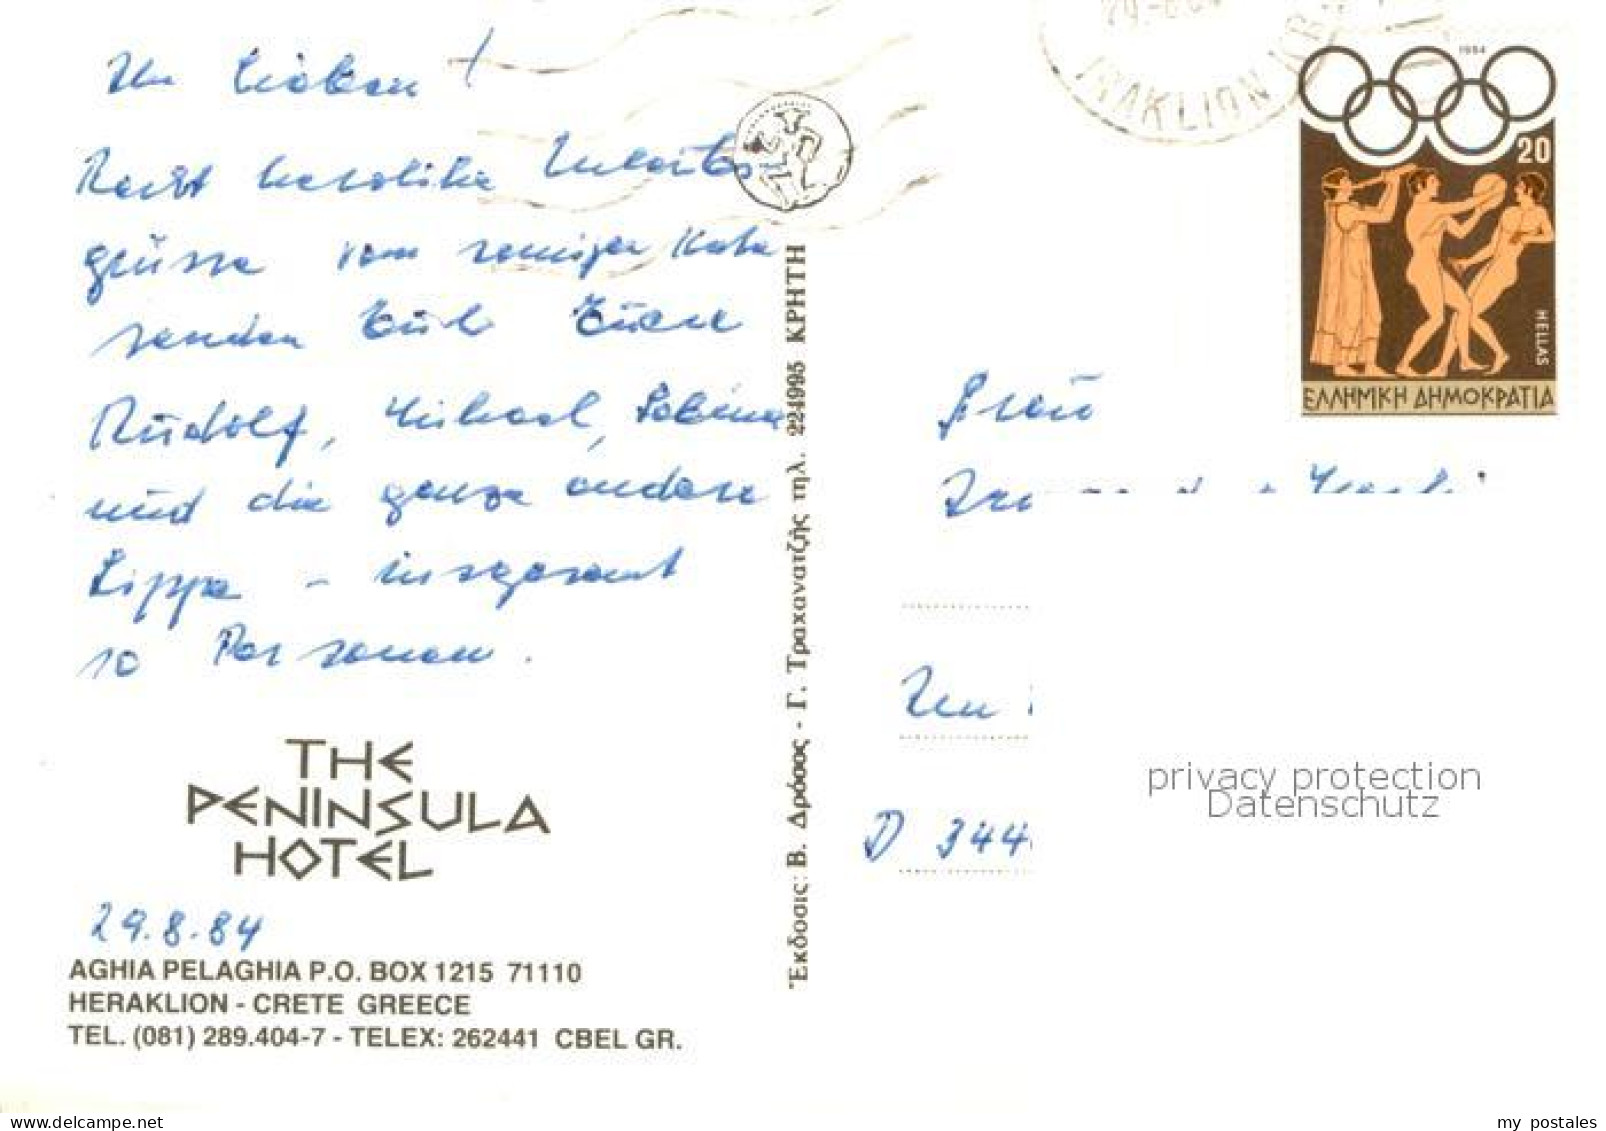 Ihr Lieben!
Recht herzliche Urlaubs
grüsse vom sonnigen Kreta
senden Euch Eure
Rudolf, Michael, Sabine
und die ganze andere
Sippe - insgesamt
10 Personen.
THE
PENINSULA
HOTEL
29.8.84
AGHIA PELAGHIA P.O. BOX 1215 71110
HERAKLION - CRETE GREECE
TEL. (081) 289.404-7 - TELEX: 262441 CBEL GR.
Ἔκδοσις: Β. Δρόσος - Γ. Τραχανατζῆς τηλ. 224995 ΚΡΗΤΗ
IRAKLION
1984
20
HELLAS
ΕΛΛΗΝΙΚΗ ΔΗΜΟΚΡΑΤΙΑ
Frau
D 344
privacy protection
Datenschutz
my postales